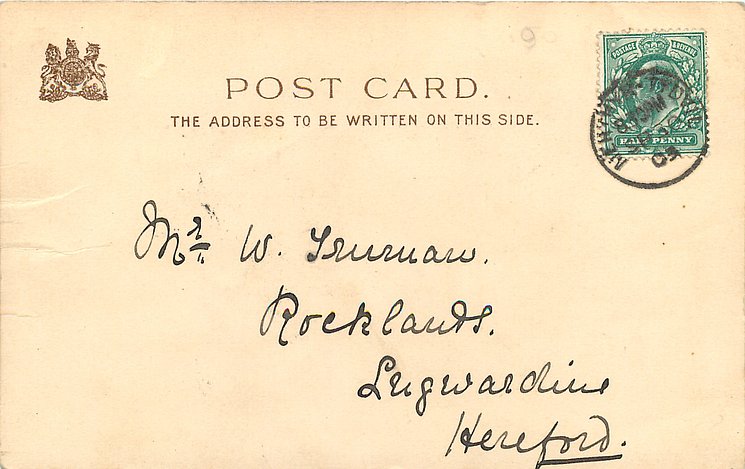 90
POST CARD.
THE ADDRESS TO BE WRITTEN ON THIS SIDE.
POSTAGE & REVENUE
HALF PENNY
03
Mr W. Truman.
Rocklands.
Lugwardine
Hereford.